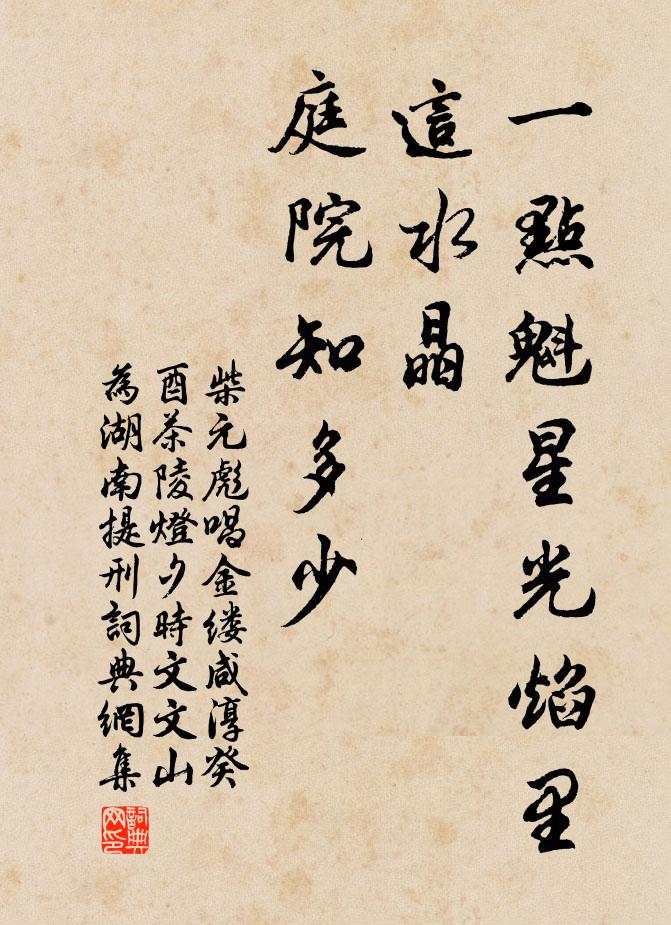 一點魁星光焰里
這水晶
庭院知多少
柴元彪唱金缕咸淳癸
酉茶陵燈夕時文文山
為湖南提刑詞典網集
詞典
网印